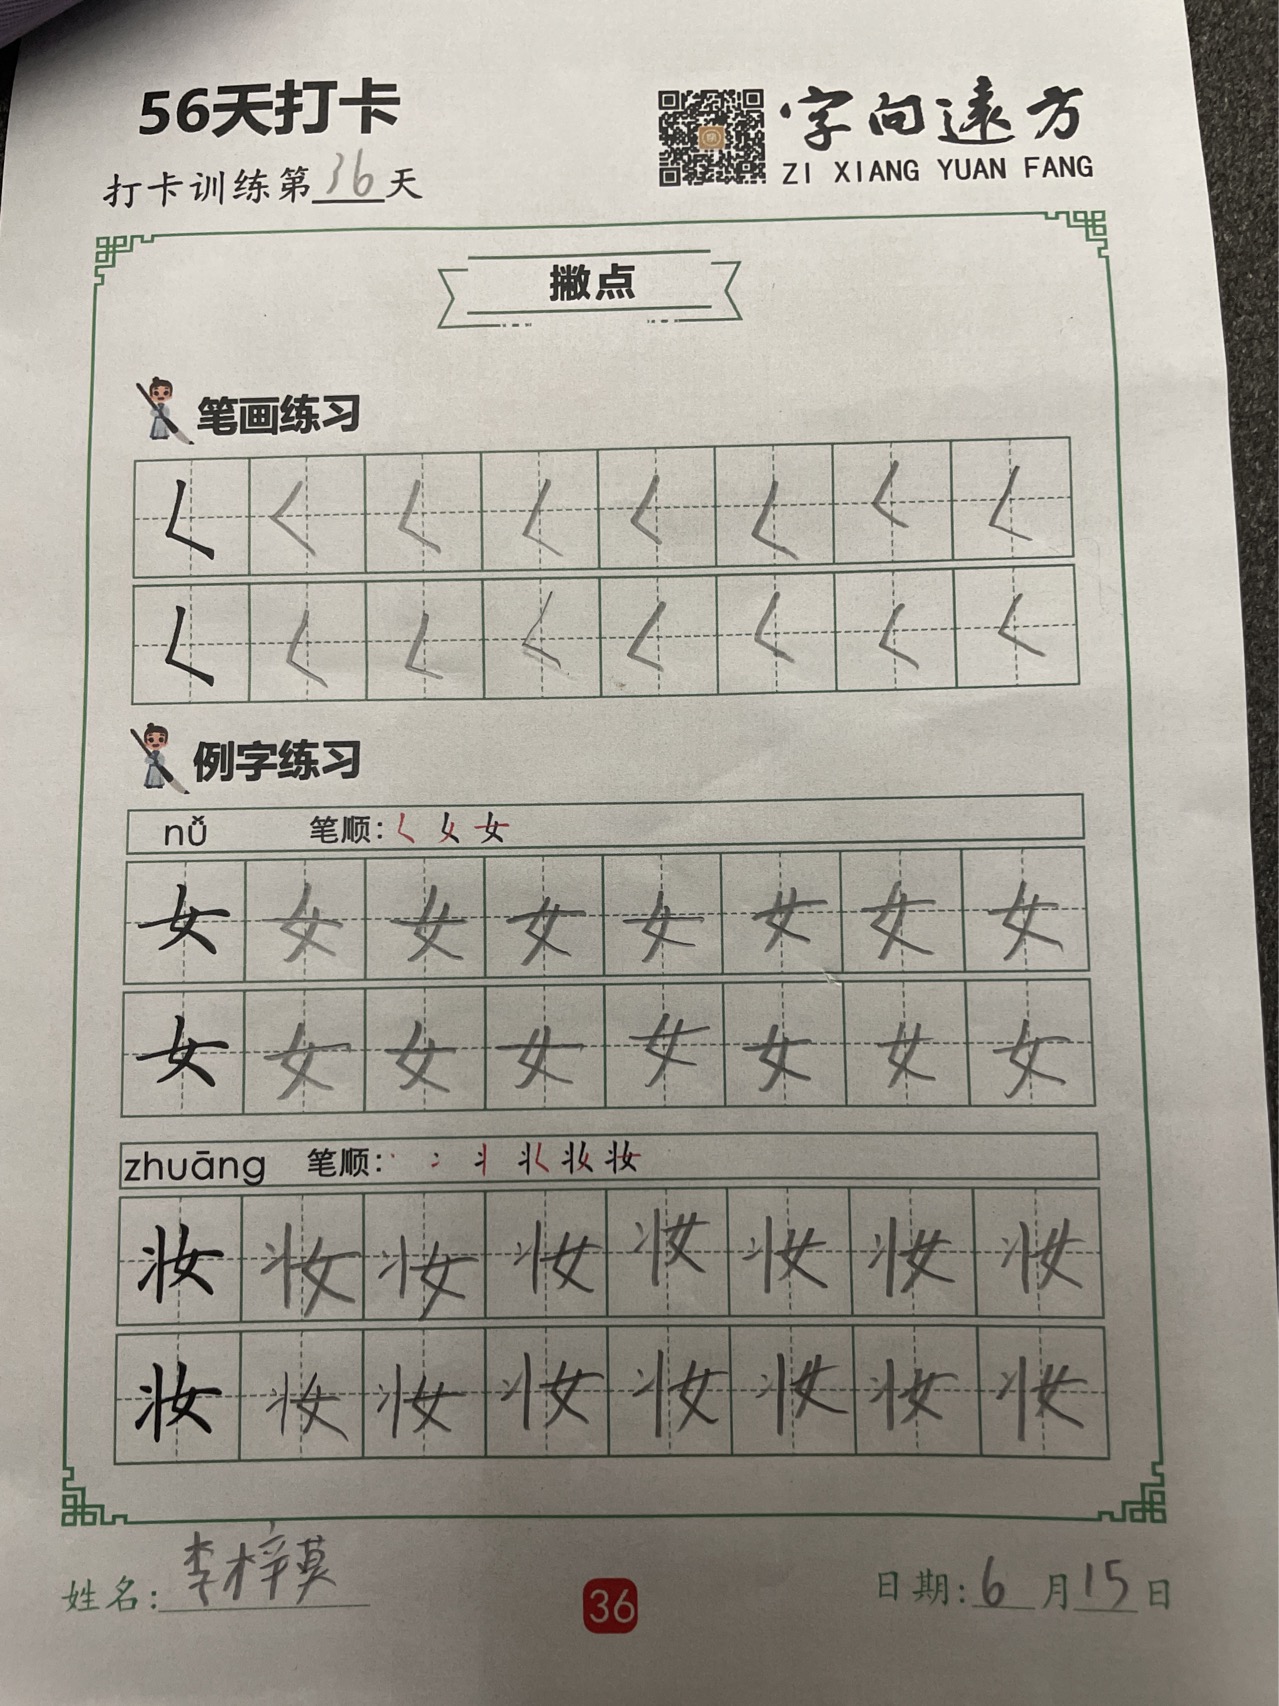 56天打卡
字向远方
ZI XIANG YUAN FANG
打卡训练第36天
撇点
笔画练习
𡿨 𡿨 𡿨 𡿨 𡿨 𡿨 𡿨 𡿨
𡿨 𡿨 𡿨 𡿨 𡿨 𡿨 𡿨 𡿨
例字练习
nǚ 笔顺: 𡿨 女
女 女 女 女 女 女 女 女
女 女 女 女 女 女 女 女
zhuāng 笔顺: 妆
妆 妆 妆 妆 妆 妆 妆 妆
妆 妆 妆 妆 妆 妆 妆 妆
姓名:李梓莫
36
日期:6月15日